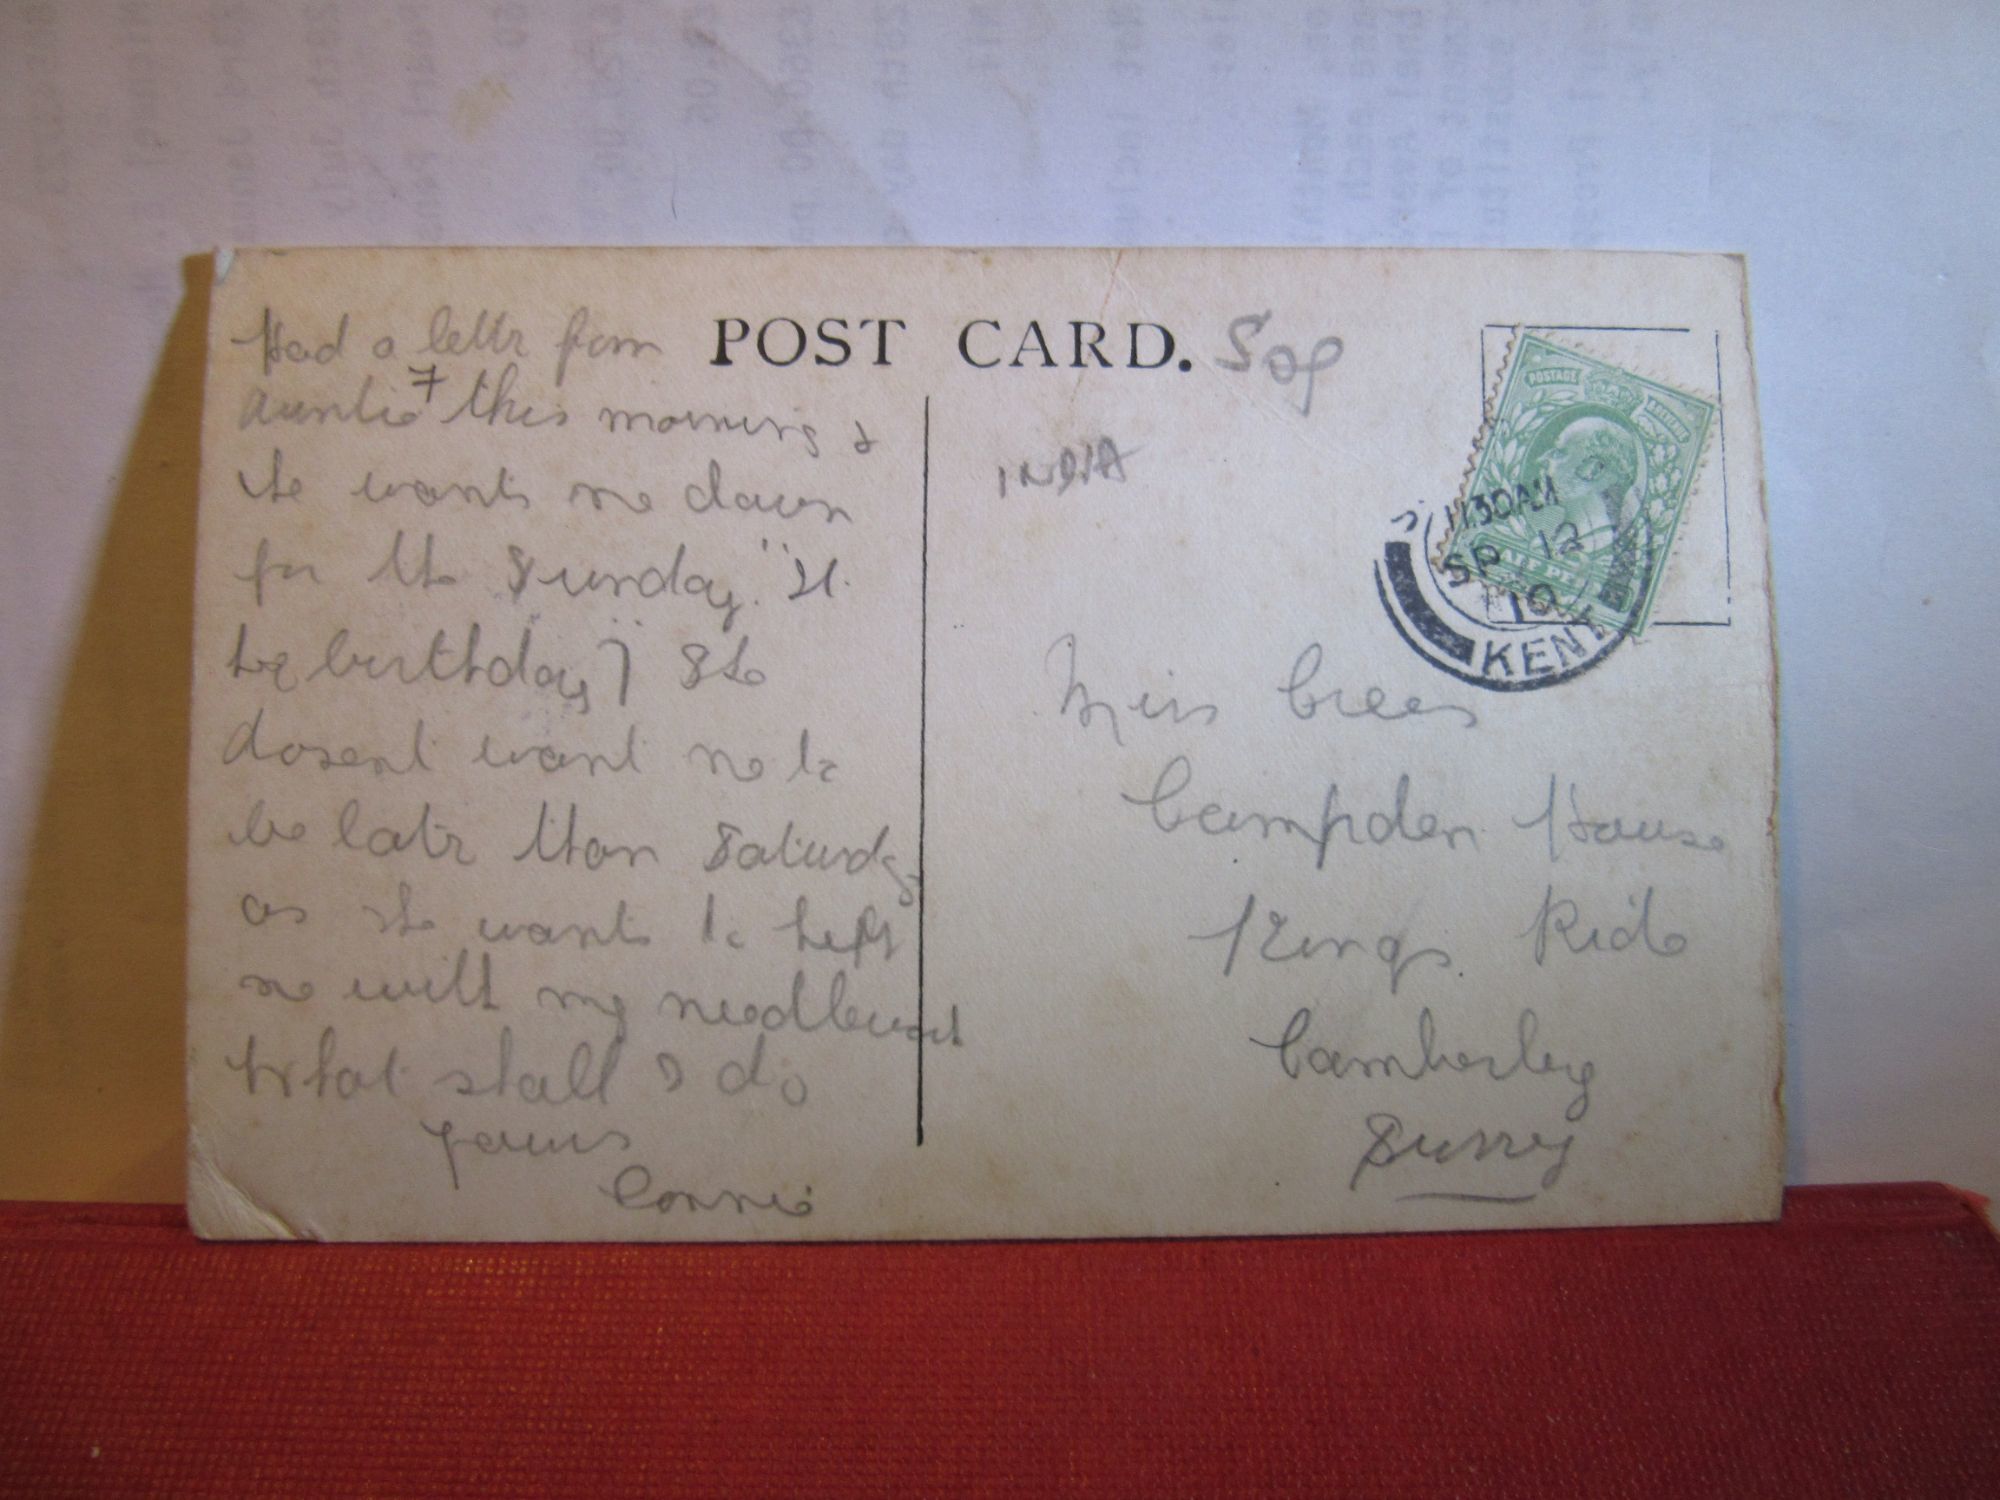 POST CARD. 50p
INDIA
Had a letter from
Auntie F this morning &
she wants me down
for the Sunday "21.
birthday") She
dosent want me to
be later than Saturday
as she wants to help
me with my needlework
What shall I do
yours
Connie
POSTAGE
HALF PE
11.30AM
SP 12
10
KENT
Miss Crees
Campden House
Kings Ride
Camberley
Surrey